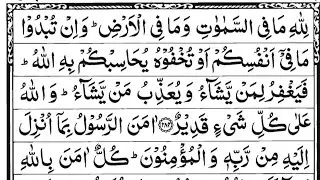 لِلّٰهِ مَا فِی السَّمٰوٰتِ وَمَا فِی الْاَرْضِ ؕ وَاِنْ تُبْدُوْا
مَا فِیْۤ اَنْفُسِكُمْ اَوْ تُخْفُوْهُ یُحَاسِبْكُمْ بِهِ اللّٰهُ ؕ
فَیَغْفِرُ لِمَنْ یَّشَآءُ وَیُعَذِّبُ مَنْ یَّشَآءُ ؕ وَاللّٰهُ
عَلٰی كُلِّ شَیْءٍ قَدِیْرٌ ﴿۲۸۴﴾ اٰمَنَ الرَّسُوْلُ بِمَاۤ اُنْزِلَ
اِلَیْهِ مِنْ رَّبِّهٖ وَالْمُؤْمِنُوْنَ ؕ كُلٌّ اٰمَنَ بِاللّٰهِ